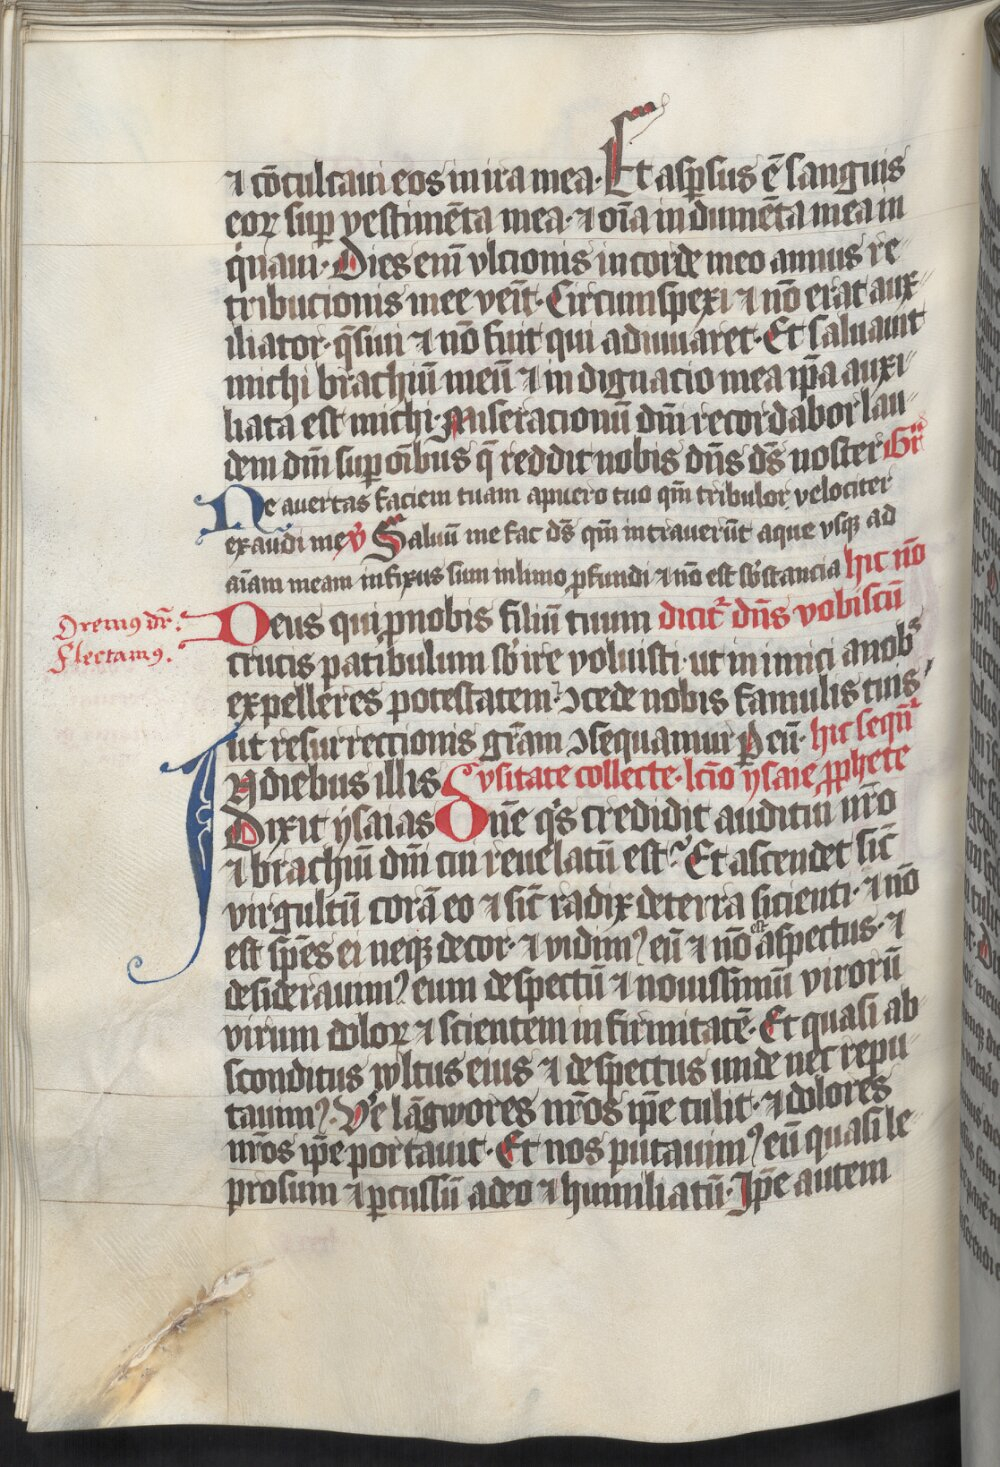 ⁊ cōculcaui eos in ira mea· Et asꝑsus ē sanguis
eoꝝ suꝑ vestimēta mea· ⁊ oīa indumēta mea in
q̇naui· Dies enī vlcionis in corde meo annus re
tribucionis mee veīt· Circumspexi ⁊ nō erat aux
iliator· q̄siui ⁊ nō fuit qui adiuuaret· Et saluauit
michi brachiū meū ⁊ indignacio mea ip̄a auxi
liata est michi· Miseracionū dn̄i recordabor lau
dem dn̄i suꝑ oībus q̄ reddit nobis dn̄s ds̄ noster Gr̄
Ne auertas faciem tuam apuero tuo qm̄ tribulor velociter
exaudi me ℣ Saluū me fac ds̄ qm̄ intrauerūt aque vsqꝫ ad
aīam meam infixus sum in limo ꝓfundi ⁊ nō est sb̄stancia hic nō
Oremꝰ dr̄·
Flectamꝰ·
Deus qui ꝓ nobis filiū tuum dicit᷑ dn̄s vobiscū
crucis patibulum sb̄ire voluisti· ut inimici a nob᷒
expelleres potestatem· ꝯcede nobis famulis tuis
ut resurrectionis gr̄am ꝯsequamur ꝑ eū· hic seqūt᷑
In diebus illis Gvsitate collecte· lcīo ysaie ꝓphete
Dixit ysaias One q᷒s credidit auditui nr̄o
⁊ brachiū dn̄i cui reuelatū est· Et ascendet sic̄
virgultū corā eo ⁊ sic̄ radix de terra sicienti· ⁊ nō
est sp̄es ei neqꝫ decor· ⁊ vidimꝰ eū ⁊ nō est aspectus· ⁊
desiderauimꝰ eum despectū ⁊ nouissimū virorū
virum doloꝝ ⁊ scientem infirmitatē· Et quasi ab
sconditus wltus eius ⁊ despectus unde nec repu
tauimꝰ· Ve᷑ lāgwores nr̄os ip̄e tulit· ⁊ dolores
nr̄os ip̄e portauit· Et nos putauimꝰ eū quasi le
prosum ⁊ ꝑcussū a deo ⁊ humiliatū· Ip̄e autem